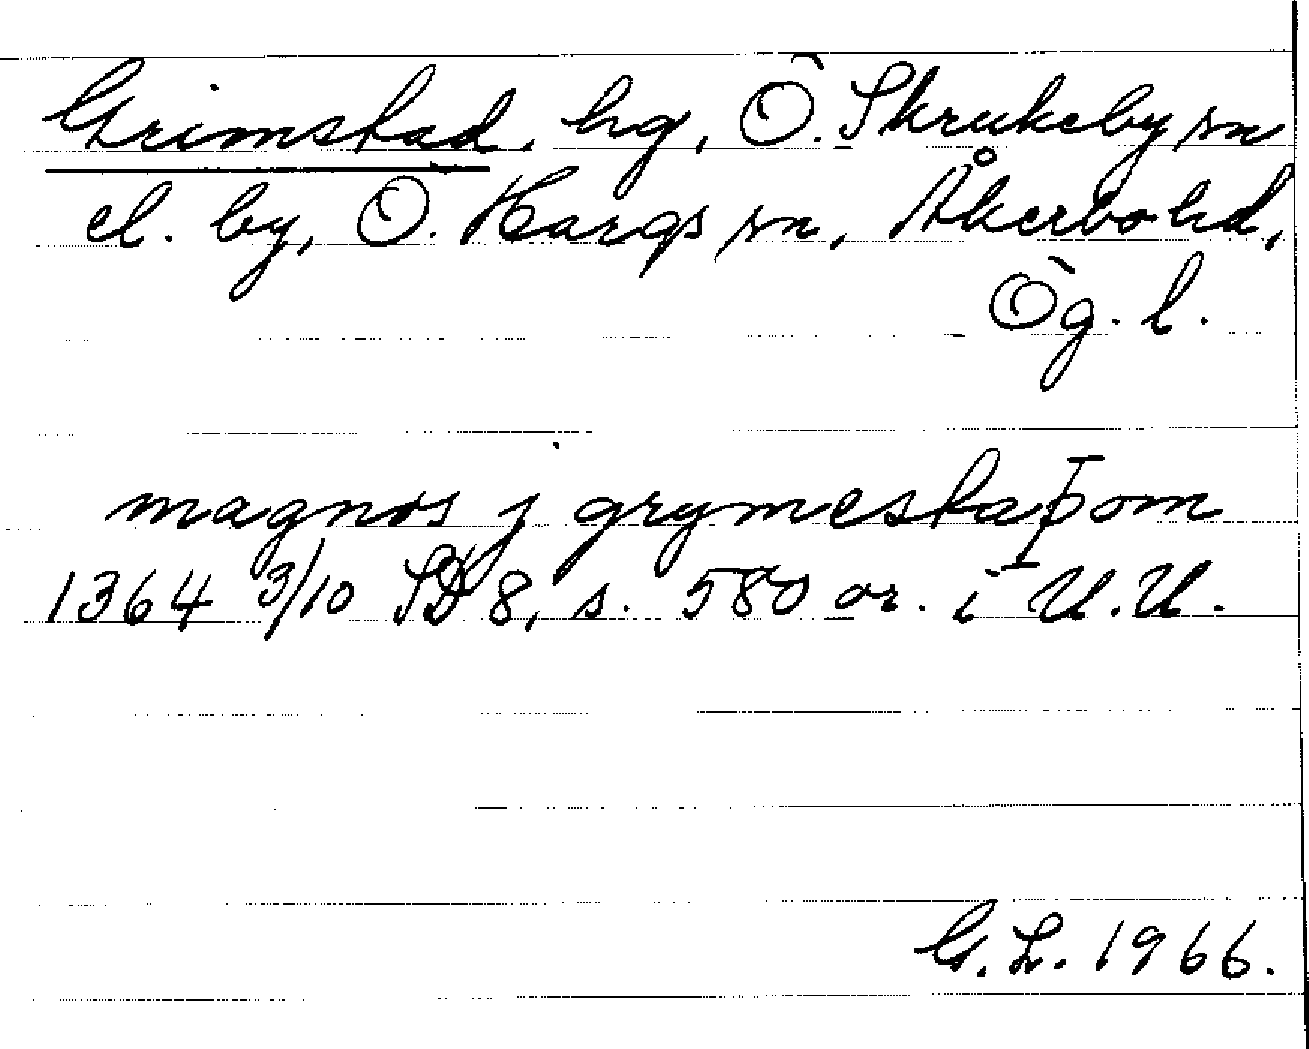 Grimstad, hg, Ö. Skrukeby sn
el. by, Ö. Hargs sn, Åkerbo hd,
Ög. l.
magnos j grymestaþom
1364 3/10 SD 8, s. 580 or. i U.U.
G.L. 1966.